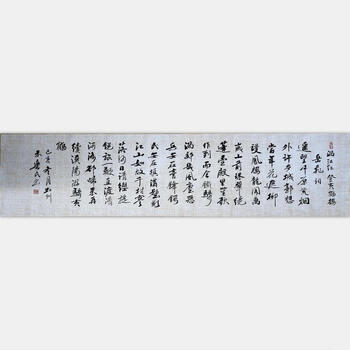 满江红 登黄鹤楼
岳飞词
遥望中原荒烟
外许多城郭想
当年花遮柳
护凤楼龙阁万
岁山前珠翠绕
蓬壶殿里笙歌
作到而今铁骑
满郊畿风尘恶
兵安在膏锋锷
民安在填沟壑叹
江山如故千村寥
落何日请缨提
锐旅一鞭直渡清
河洛却归来再
续汉阳游骑黄
鹤
己亥冬月